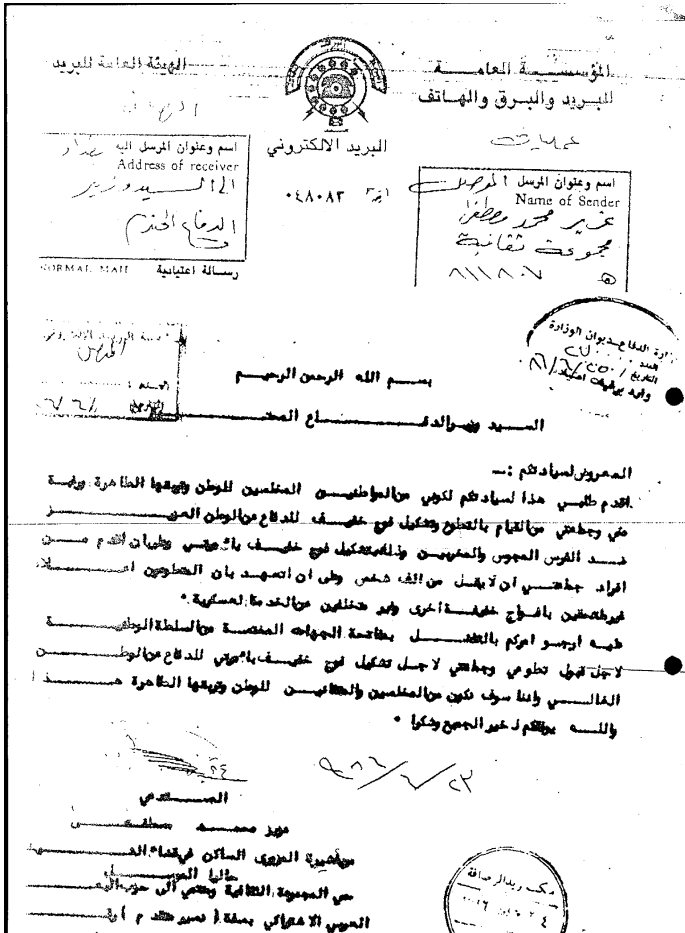 المؤسسة العامة
للبريد والبرق والهاتف
الهيئة العامة للبريد
البريد الالكتروني
٠٤٨٠٨٣
اسم وعنوان المرسل الموصل
Name of Sender
عزيز محمد مصطفى
مجموعة ثقافية
٨١١٨٠٧
اسم وعنوان المرسل اليه بغداد
Address of receiver
الى السيد وزير
الدفاع المحترم
NORMAL MAIL رسالة اعتيادية
وزارة الدفاع ديوان الوزارة
العدد
التاريخ
بسم الله الرحمن الرحيم
السيد وزير الدفاع المحت
المعروض لسيادتكم :ــ
اقدم طلبي هذا لسيادتكم لكوني من المواطنين المخلصين للوطن وتربتها الطاهرة ورغبة
مني وجماعتي من القيام بالتطوع وتشكيل فوج خفيف للدفاع عن الوطن العزيز
ضد الفرس المجوس والمخربين وذلك بتشكيل فوج خفيف بأمرتي وعلي ان اقدم من
افراد جماعتي ان لا يقل من الف شخص وعلى ان اتعهد بان المتطوعين اعلا
غير ملتحقين بافواج خفيفة اخرى وغير متخلفين من الخدمة العسكرية .
عليه ارجو امركم بالتفضل بمفاتحة الجهات المختصة من السلطة الوطنية
لاجل قبول تطوعي وجماعتي لاجل تشكيل فوج خفيف بأمرتي للدفاع عن الوطن
الغالي واننا سوف نكون من المخلصين والمتفانين للوطن وتربتها الطاهرة هذا
والله يوفقكم لخير الجميع وشكرا .
٩٨٦/٦/٢٣
المستدعي
عزيز محمد مصطفى
من عشيرة المزوري الساكن في قضاء
حاليا الموصل
حي المجموعة الثقافية ومنتمي الى حزب البعث
العربي الاشتراكي بصفة ( نصير متقدم )
مكتب بريد الرصافة